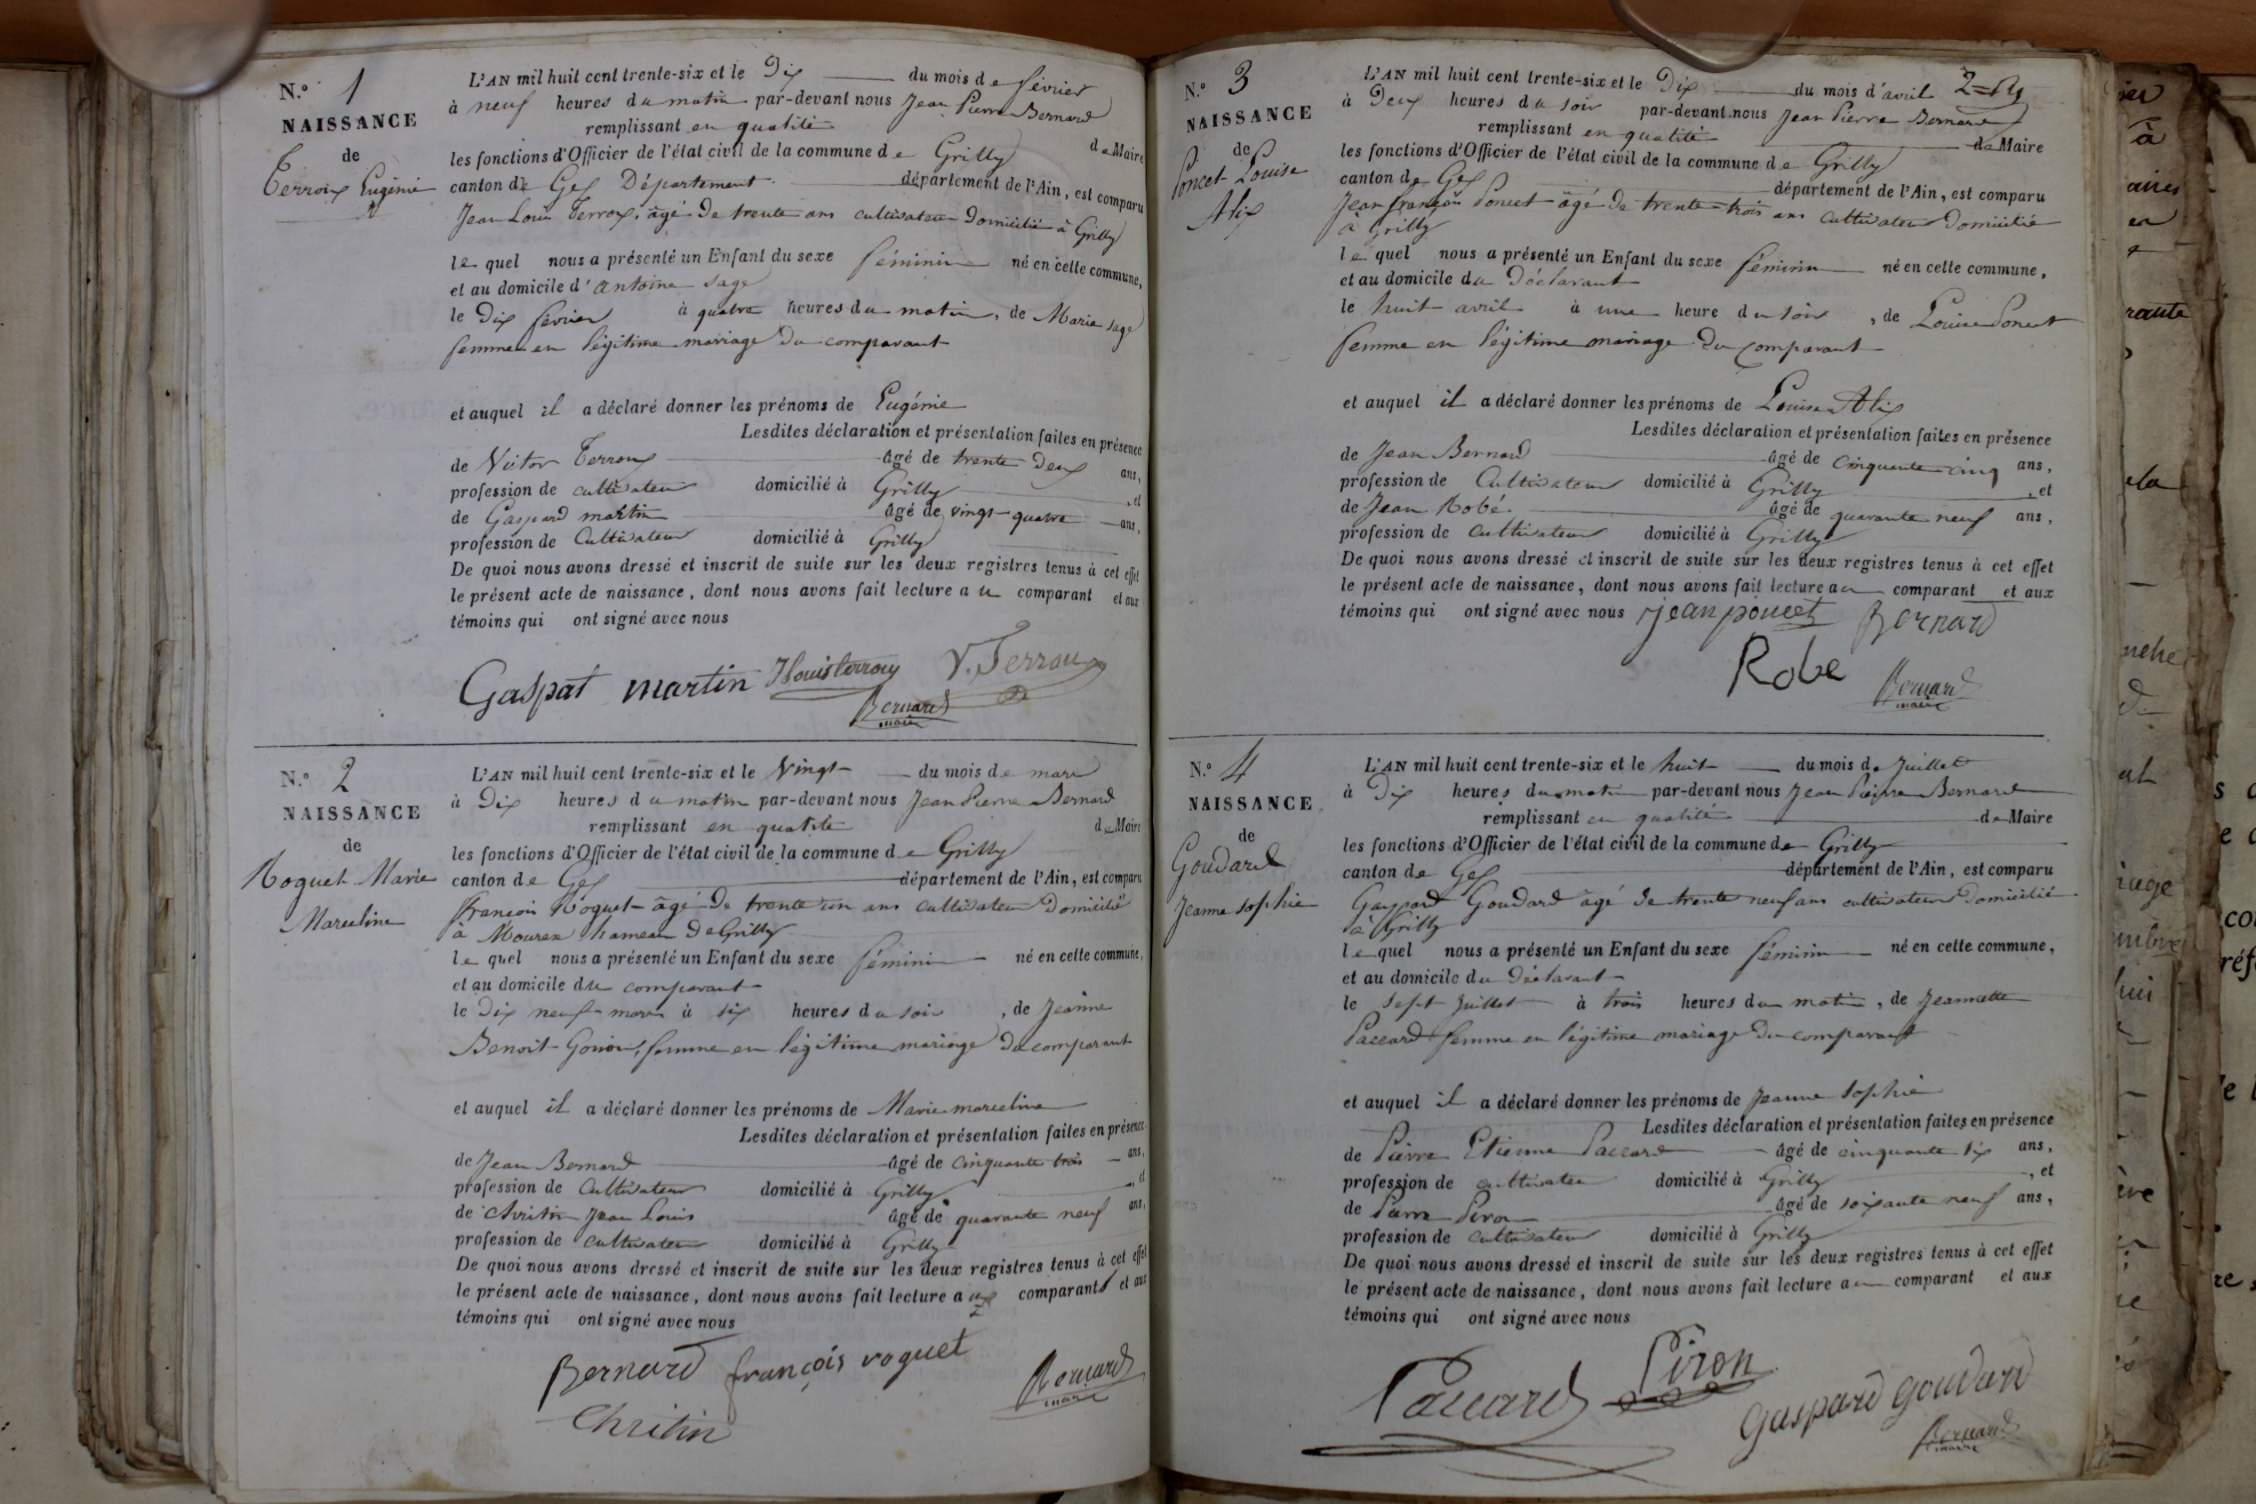 N.° 1
NAISSANCE
de
Terroux Eugénie
L'AN mil huit cent trente-six et le Dix du mois de février
à neuf heures du matin par-devant nous Jean Pierre Bernard
remplissant en qualité de Maire
les fonctions d'Officier de l'état civil de la commune de Grilly
canton de Gex Département département de l'Ain, est comparu
Jean Louis Terroux, âgé de trente ans cultivateur domicilié à Grilly
lequel nous a présenté un Enfant du sexe féminin né en cette commune,
et au domicile d'antoine sage
le dix février à quatre heures du matin, de Marie sage
femme en légitime mariage du comparant
et auquel il a déclaré donner les prénoms de Eugénie
Lesdites déclaration et présentation faites en présence
de Victor Terroux âgé de trente deux ans,
profession de cultivateur domicilié à Grilly, et
de Gaspard martin âgé de vingt quatre ans,
profession de Cultivateur domicilié à Grilly
De quoi nous avons dressé et inscrit de suite sur les deux registres tenus à cet effet
le présent acte de naissance, dont nous avons fait lecture au comparant et aux
témoins qui ont signé avec nous
Gaspat martin JLouis terroux V. Terroux
Bernard
maire
N.° 2
NAISSANCE
de
Roguet Marie
Marceline
L'AN mil huit cent trente-six et le vingt du mois de mars
à Dix heures du matin par-devant nous Jean Pierre Bernard
remplissant en qualité de Maire
les fonctions d'Officier de l'état civil de la commune de Grilly
canton de Gex département de l'Ain, est comparu
françois Roguet âgé de trente un ans cultivateur domicilié
à Mourex hameau de Grilly
lequel nous a présenté un Enfant du sexe féminin né en cette commune,
et au domicile du comparant
le dix neuf mars à six heures du soir, de Jeanne
Benoit Gonon, femme en légitime mariage du comparant
et auquel il a déclaré donner les prénoms de Marie marceline
Lesdites déclaration et présentation faites en présence
de Jean Bernard âgé de cinquante trois ans,
profession de Cultivateur domicilié à Grilly, et
de chritin Jean Louis âgé de quarante neuf ans,
profession de cultivateur domicilié à Grilly
De quoi nous avons dressé et inscrit de suite sur les deux registres tenus à cet effet
le présent acte de naissance, dont nous avons fait lecture aux comparants et aux
témoins qui ont signé avec nous
Bernard françois roguet Bernard
maire
Chritin
N.° 3
NAISSANCE
de
Poncet Louise
Alix
L'AN mil huit cent trente-six et le Dix du mois d'avril
à Deux heures du soir par-devant nous Jean Pierre Bernard
remplissant en qualité de Maire
les fonctions d'Officier de l'état civil de la commune de Grilly
canton de Gex département de l'Ain, est comparu
Jean françois Poncet âgé de trente trois ans cultivateur domicilié
à Grilly
lequel nous a présenté un Enfant du sexe féminin né en cette commune,
et au domicile du Déclarant
le huit avril à une heure du soir, de Louise Poncet
femme en légitime mariage du comparant
et auquel il a déclaré donner les prénoms de Louise Alix
Lesdites déclaration et présentation faites en présence
de Jean Bernard âgé de cinquante cinq ans,
profession de Cultivateur domicilié à Grilly, et
de Jean Robé âgé de quarante neuf ans,
profession de cultivateur domicilié à Grilly
De quoi nous avons dressé et inscrit de suite sur les deux registres tenus à cet effet
le présent acte de naissance, dont nous avons fait lecture au comparant et aux
témoins qui ont signé avec nous jean poncet Bernard
Robe Bernard
maire
N.° 4
NAISSANCE
de
Goudard
Jeanne sophie
L'AN mil huit cent trente-six et le huit du mois de Juillet
à Dix heures du matin par-devant nous Jean Pierre Bernard
remplissant en qualité de Maire
les fonctions d'Officier de l'état civil de la commune de Grilly
canton de Gex département de l'Ain, est comparu
Gaspard Goudard âgé de trente neuf ans cultivateur domicilié
à Grilly
lequel nous a présenté un Enfant du sexe féminin né en cette commune,
et au domicile du Déclarant
le sept Juillet à trois heures du matin, de Jeannette
Paccard femme en légitime mariage du comparant
et auquel il a déclaré donner les prénoms de Jeanne Sophie
Lesdites déclaration et présentation faites en présence
de Pierre Etienne Paccard âgé de cinquante six ans,
profession de cultivateur domicilié à Grilly, et
de Pierre Piron âgé de soixante neuf ans,
profession de cultivateur domicilié à Grilly
De quoi nous avons dressé et inscrit de suite sur les deux registres tenus à cet effet
le présent acte de naissance, dont nous avons fait lecture au comparant et aux
témoins qui ont signé avec nous
Paccard Piron Gaspard Goudard
Bernard
maire